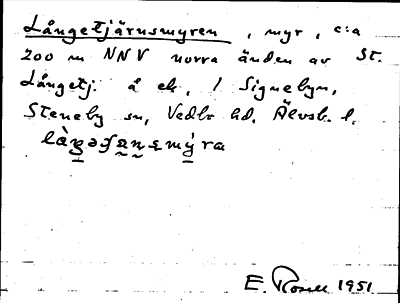 Långetjärnsmyren, myr, c:a
200 m NNV norra änden av St.
Långetj. å ek. 1 Signebyn,
Steneby sn, Vedbo hd. Älvsb. l.
E. Rosell 1951